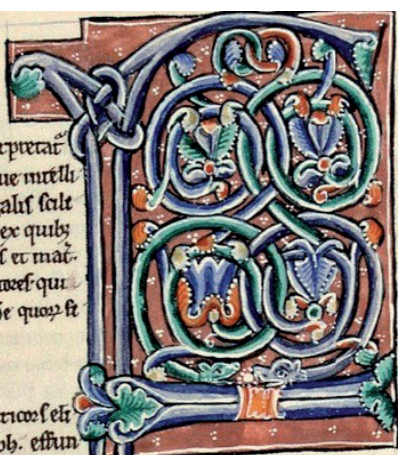 rpretat᷑
ue intelli
galiſ ſcilt
ex quibꝫ
ſ et mat.
toreſ qui
e quoꝝ ſt
ricorſ eſt
ph. effun